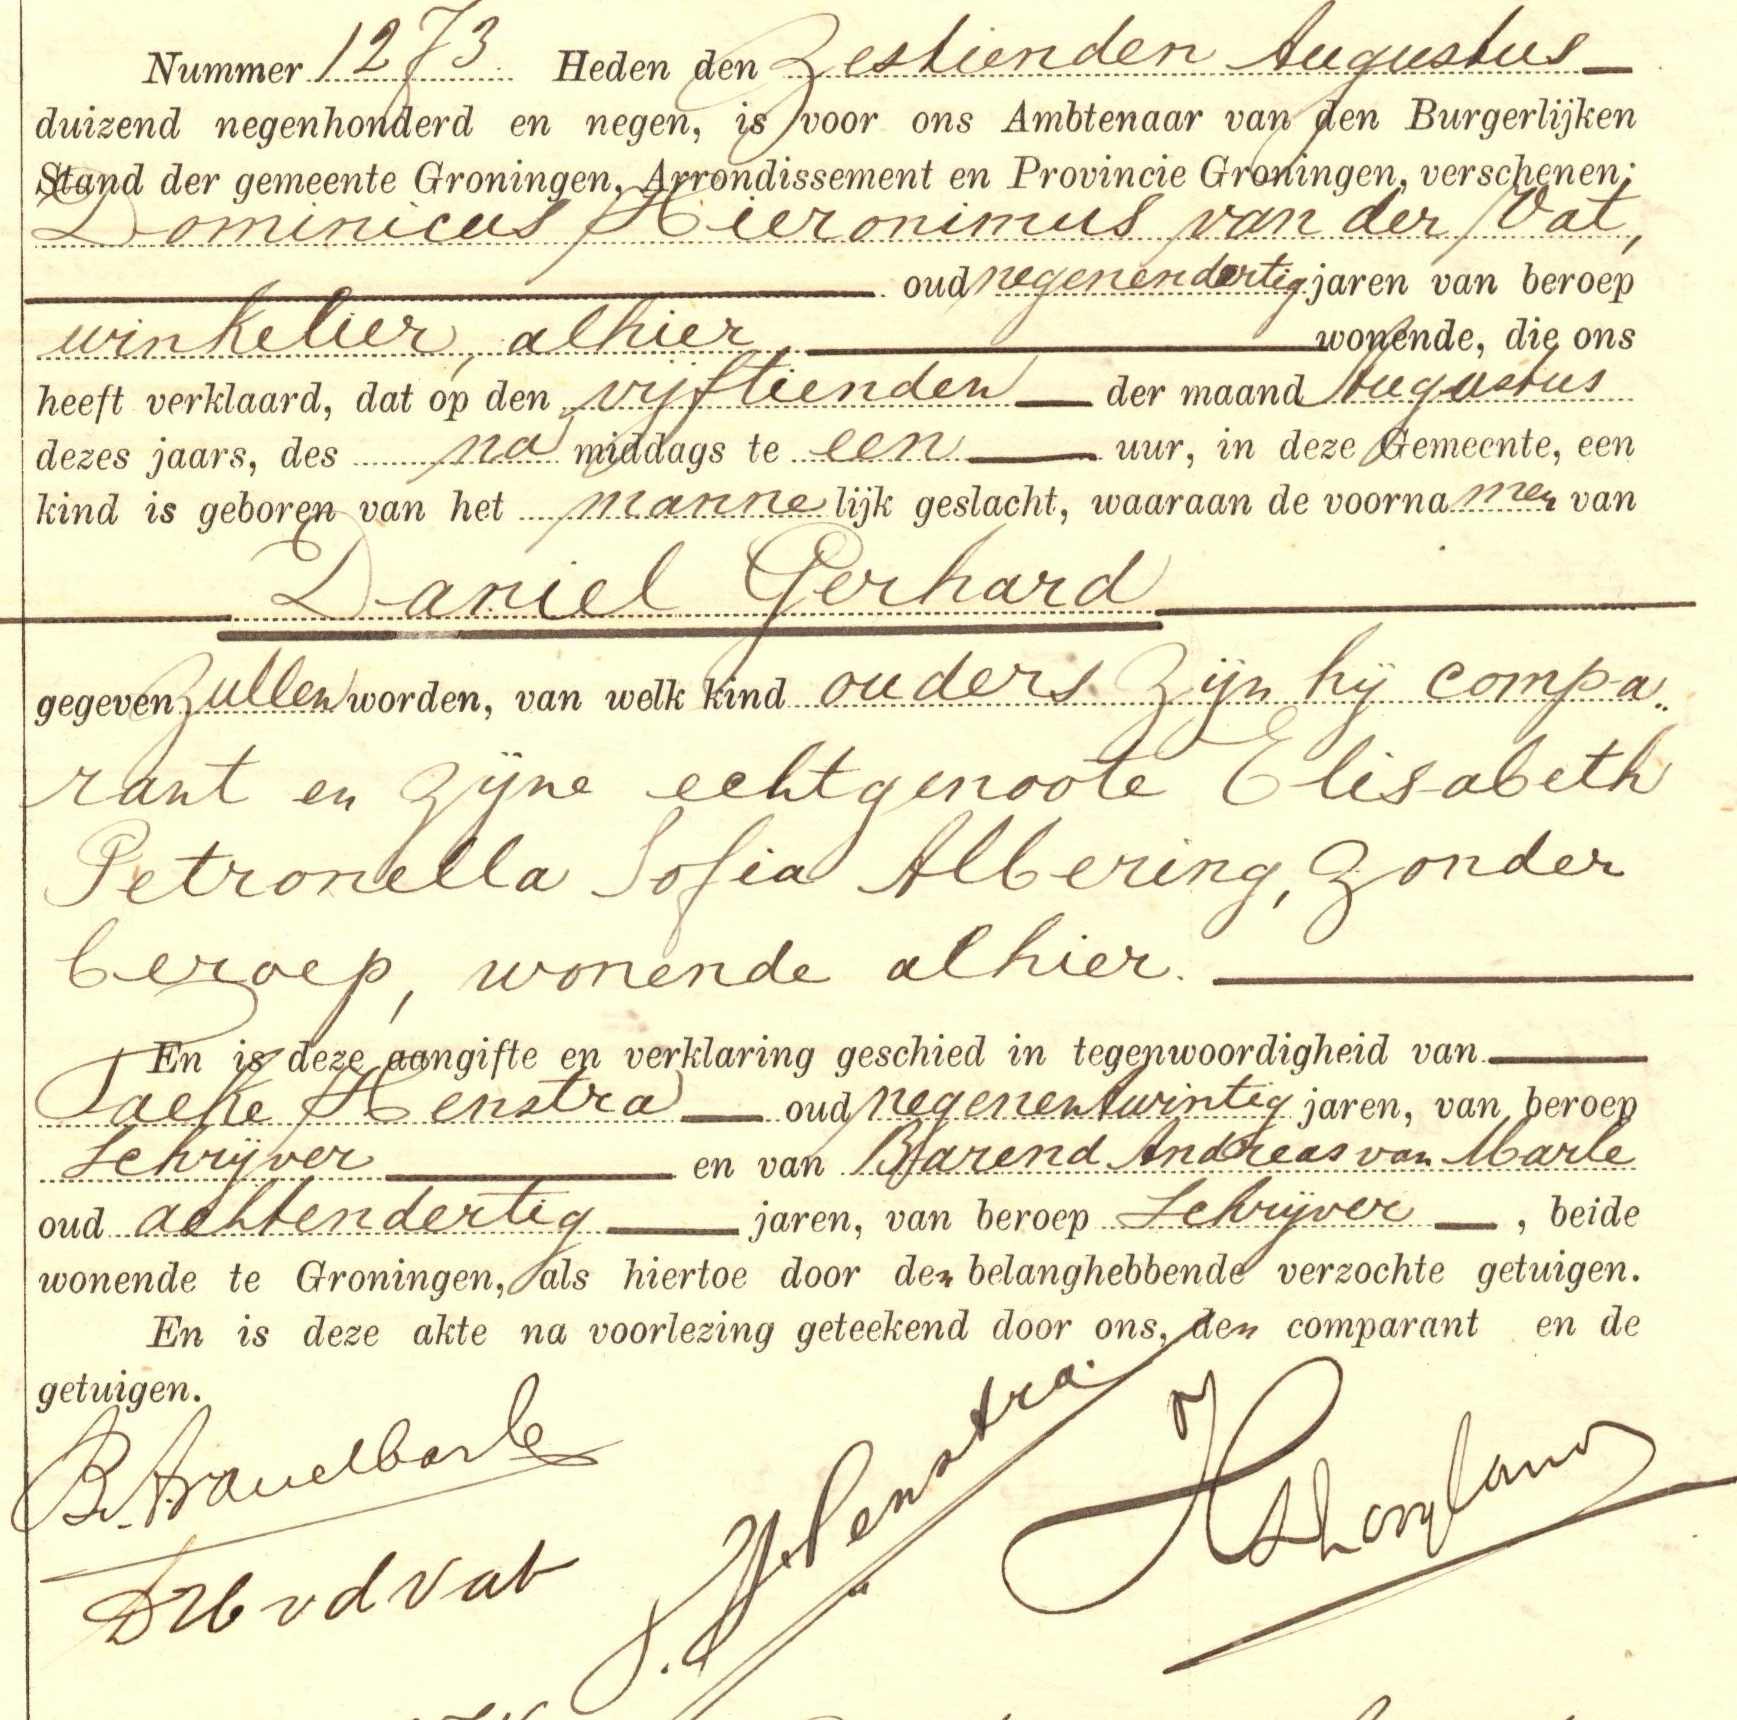 Nummer 1273. Heden den Zestienden Augustus
duizend negenhonderd en negen, is voor ons Ambtenaar van den Burgerlijken
Stand der gemeente Groningen, Arrondissement en Provincie Groningen, verschenen:
Dominicus Hieronimus van der Vat,
oud negenendertig jaren van beroep
winkelier, alhier wonende, die ons
heeft verklaard, dat op den vijftienden der maand Augustus
dezes jaars, des na middags te een uur, in deze Gemeente, een
kind is geboren van het mannelijk geslacht, waaraan de voornamen van
Daniel Gerhard
gegeven zullen worden, van welk kind ouders zijn hij compa„
rant en zijne echtgenoote Elisabeth
Petronella Sofia Albering, zonder
beroep, wonende alhier.
En is deze aangifte en verklaring geschied in tegenwoordigheid van
Taeke Henstra oud negenentwintig jaren, van beroep
Schrijver en van Barend Andreas van Marle
oud achtendertig jaren, van beroep Schrijver, beide
wonende te Groningen, als hiertoe door den belanghebbende verzochte getuigen.
En is deze akte na voorlezing geteekend door ons, den comparant en de
getuigen.
DHvdVat
T. Henstra.